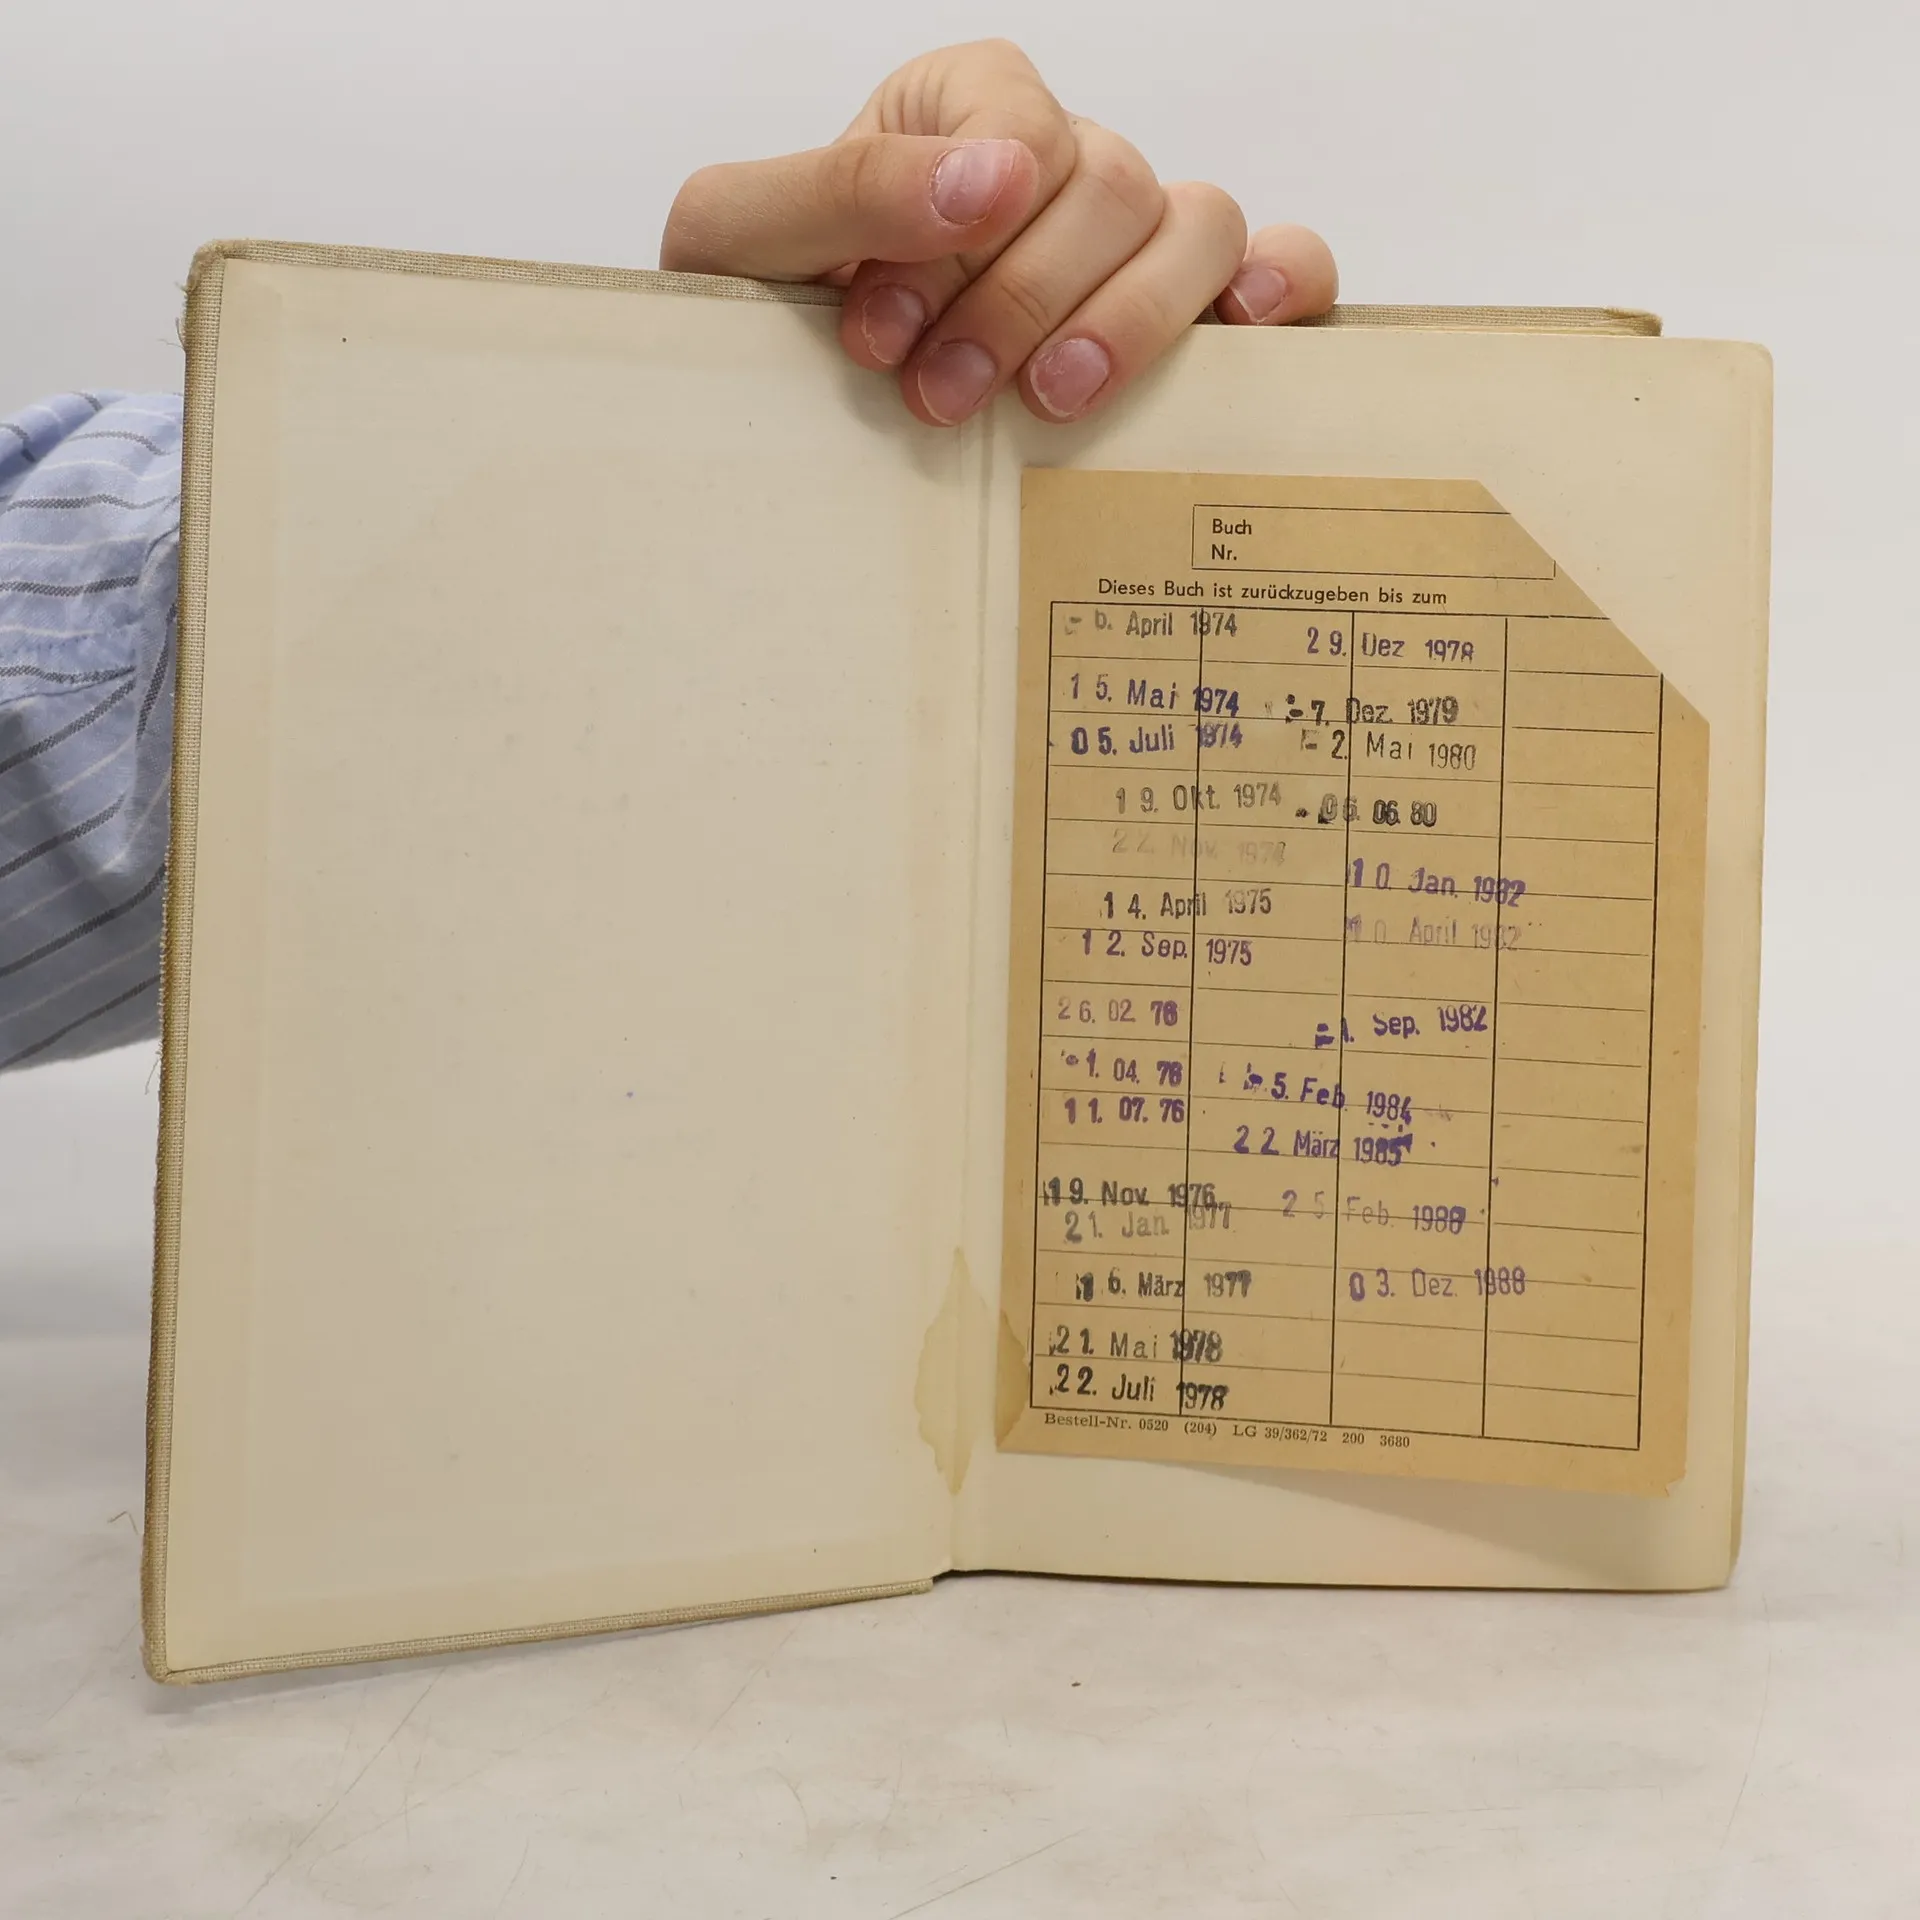 Buch
Nr.
Dieses Buch ist zurückzugeben bis zum
- 6. April 1974
15. Mai 1974
05. Juli 1974
19. Okt. 1974
22. Nov. 1974
14. April 1975
12. Sep. 1975
26. 02. 76
-1. 04. 76
11. 07. 76
19. Nov. 1976
21. Jan. 1977
16. März 1977
21. Mai 1978
22. Juli 1978
29. Dez 1978
-7. Dez. 1979
-2. Mai 1980
06. 80
10. Jan. 1982
10. April 1982
-1. Sep. 1982
-5. Feb. 1984
22. März 1985
25 Feb.
03. Dez. 1988
Bestell-Nr. 0520 (204) LG 39/362/72 200 3680